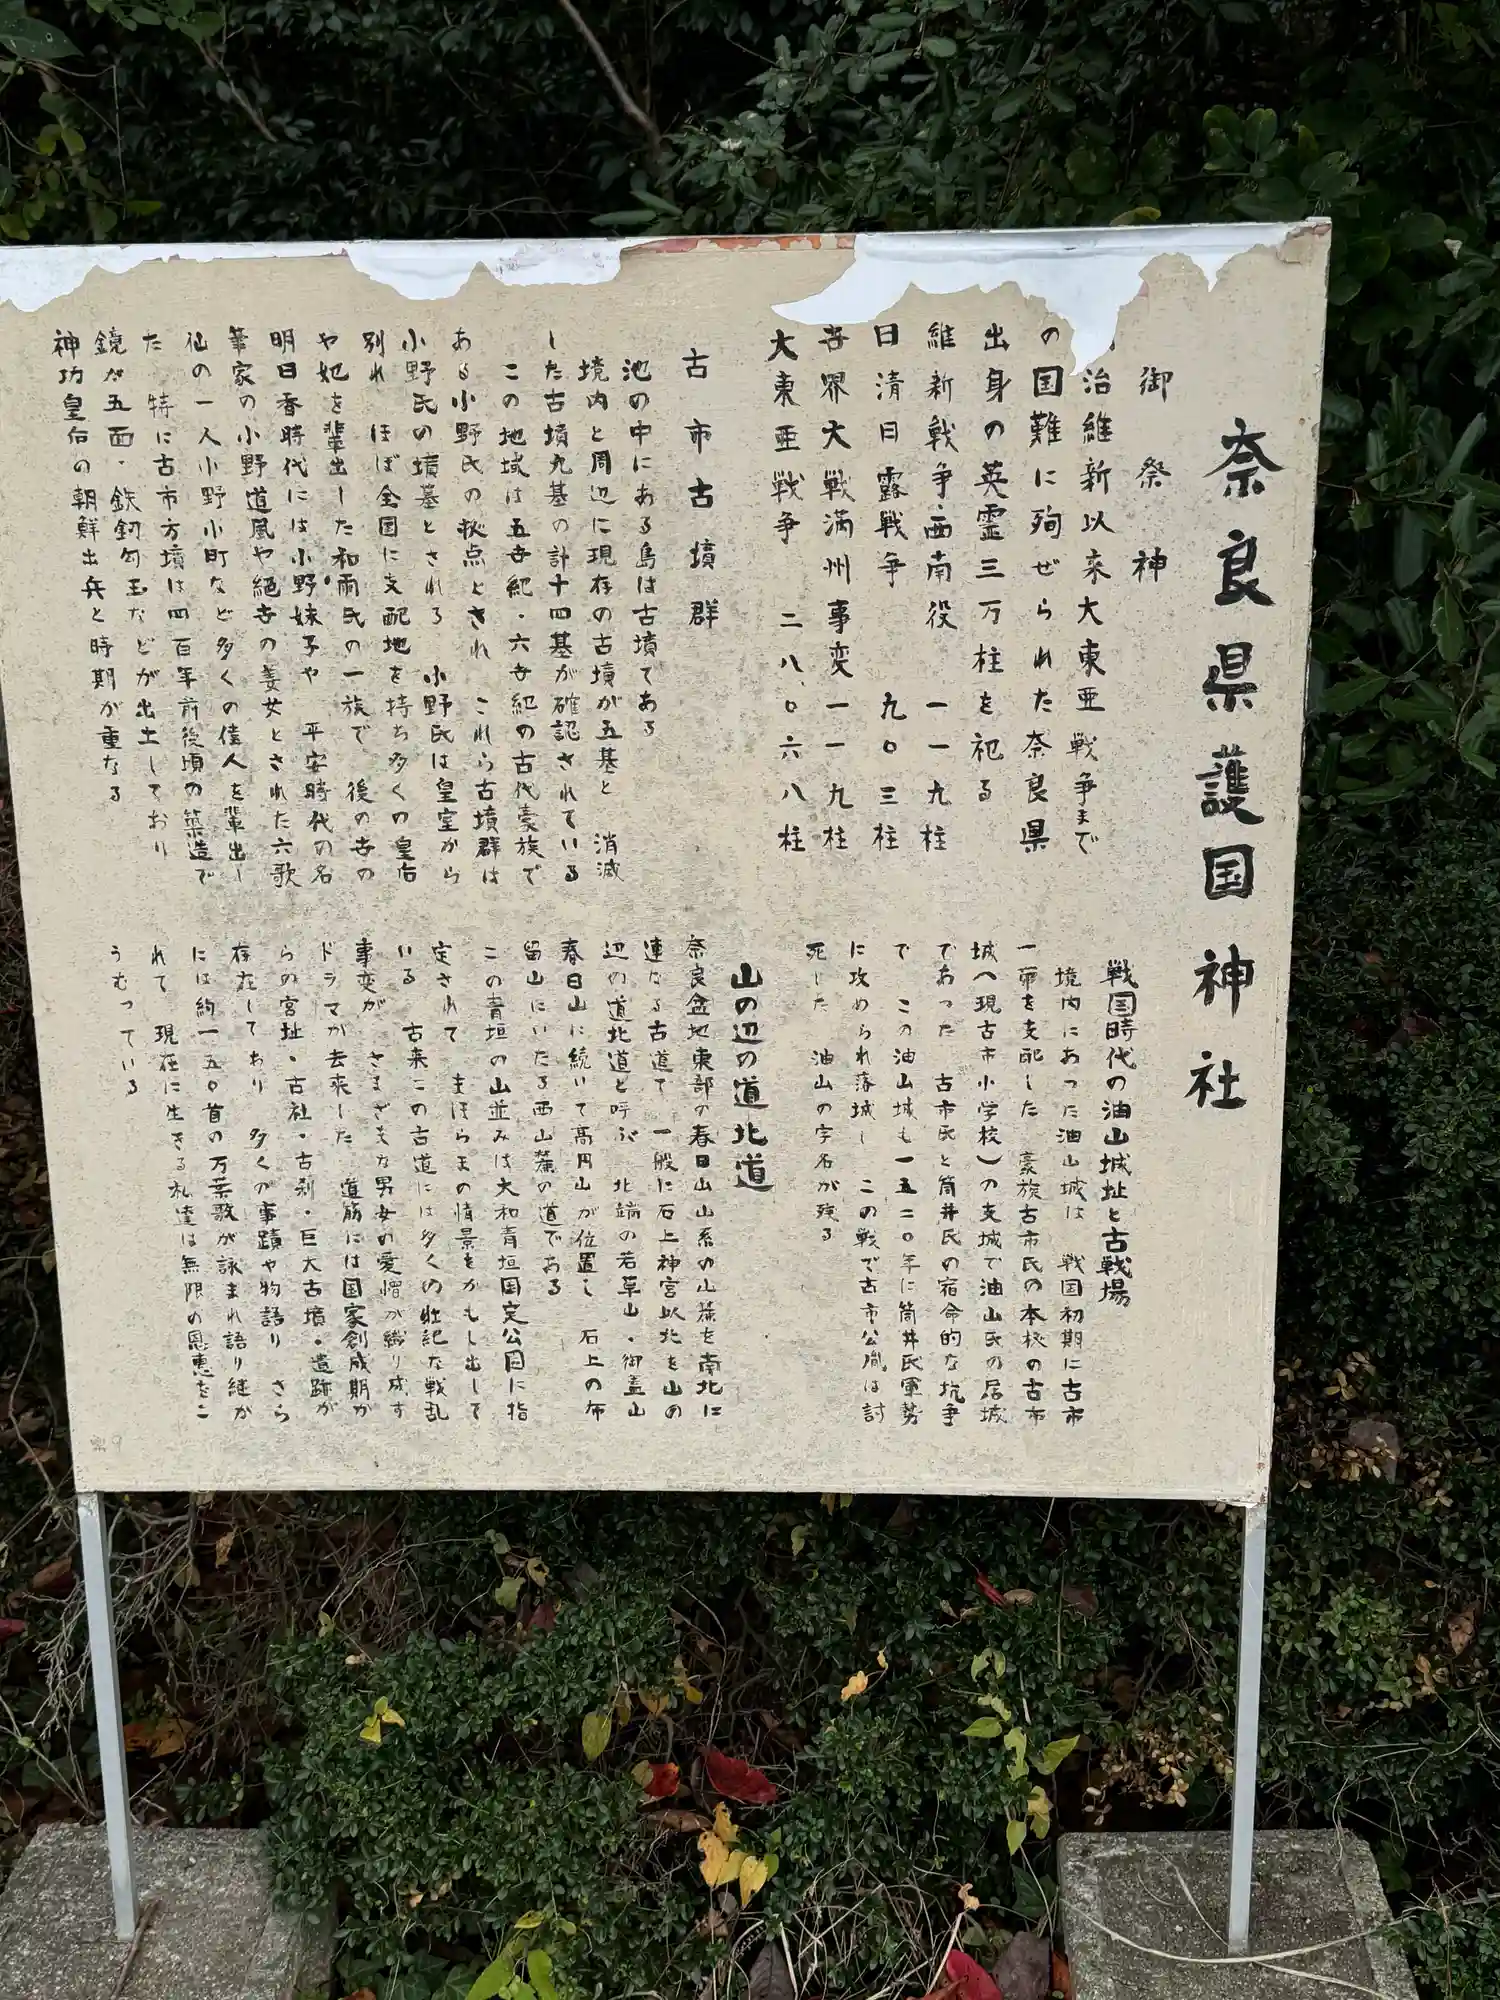 奈良県護国神社
御祭神
治維新以来大東亜戦争まで
の国難に殉ぜられた奈良県
出身の英霊三万柱を祀る
維新戦争・西南役 一一九柱
日清日露戦争 九〇三柱
大戦満州事変一一九柱
大東亜戦争 二八、〇六八柱
古市古墳群
池の中にある島は古墳である
境内と周辺に現存の古墳が五基と 消滅
した古墳九基の計十四基が確認されている
この地域は五世紀・六世紀の古代豪族で
ある小野氏の拠点とされ これら古墳群は
小野氏の墳墓とされる 小野氏は皇室から
別れ ほぼ全国に支配地を持ち多くの皇后
や妃を輩出した和珥氏の一族で 後の世の
明日香時代には小野妹子や 平安時代の名
筆家の小野道風や絶世の美女とされた六歌
仙の一人小野小町など多くの偉人を輩出し
た 特に古市方墳は四百年前後頃の築造で
鏡が五面・鉄釼勾玉などが出土しており
神功皇后の朝鮮出兵と時期が重なる
戦国時代の油山城址と古戦場
境内にあった油山城は 戦国初期に古市
一帯を支配した 豪族古市氏の本拠の古市
城(現古市小学校)の支城で油山氏の居城
であった 古市氏と筒井氏の宿命的な抗争
で この油山城も一五二〇年に筒井氏軍勢
に攻められ落城し この戦で古市公胤は討
死した 油山の字名が残る
山の辺の道北道
奈良盆地東部の春日山山系の山麓を南北に
連なる古道で 一般に石上神宮以北を山の
辺の道北道と呼ぶ 北端の若草山・御蓋山
春日山に続いて高円山が位置し 石上の布
留山にいたる西山麓の道である
この青垣の山並みは大和青垣国定公園に指
定されて まほらまの情景をかもし出して
いる 古来この古道には多くの壮絶な戦乱
事変が さまざまな男女の愛憎が織り成す
ドラマが去来した 道筋には国家創成期か
らの宮址・古社・古刹・巨大古墳・遺跡が
存在しており 多くの事蹟や物語り さら
には約一五〇首の万葉歌が詠まれ語り継が
れて 現在に生きる私達は無限の恩恵をこ
うむっている